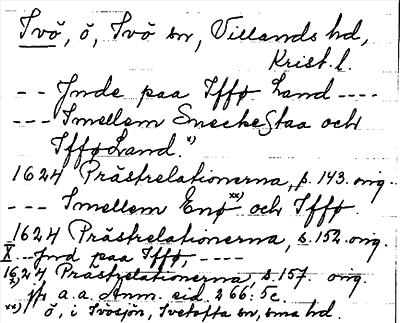 Ivö, ö, Ivö sn, Villands hd,
Krist. l.
-- Jnde paa Iffø Land ----
--- Imellem Sneckestaa och
Iffø Land. x)
1624 Prästrelationerna, s. 143. orig.
--- Imellem Enø xx) och Iffø.
1624 Prästrelationerna, s. 152. orig.
X --- Jnd paa Iffø, ----
1624 Prästrelationerna, s. 157. orig.
x) jfr a.a. Anm. sid. 266. 5c.
xx) ö, i Ivösjön, Ivetofta sn, sma hd.